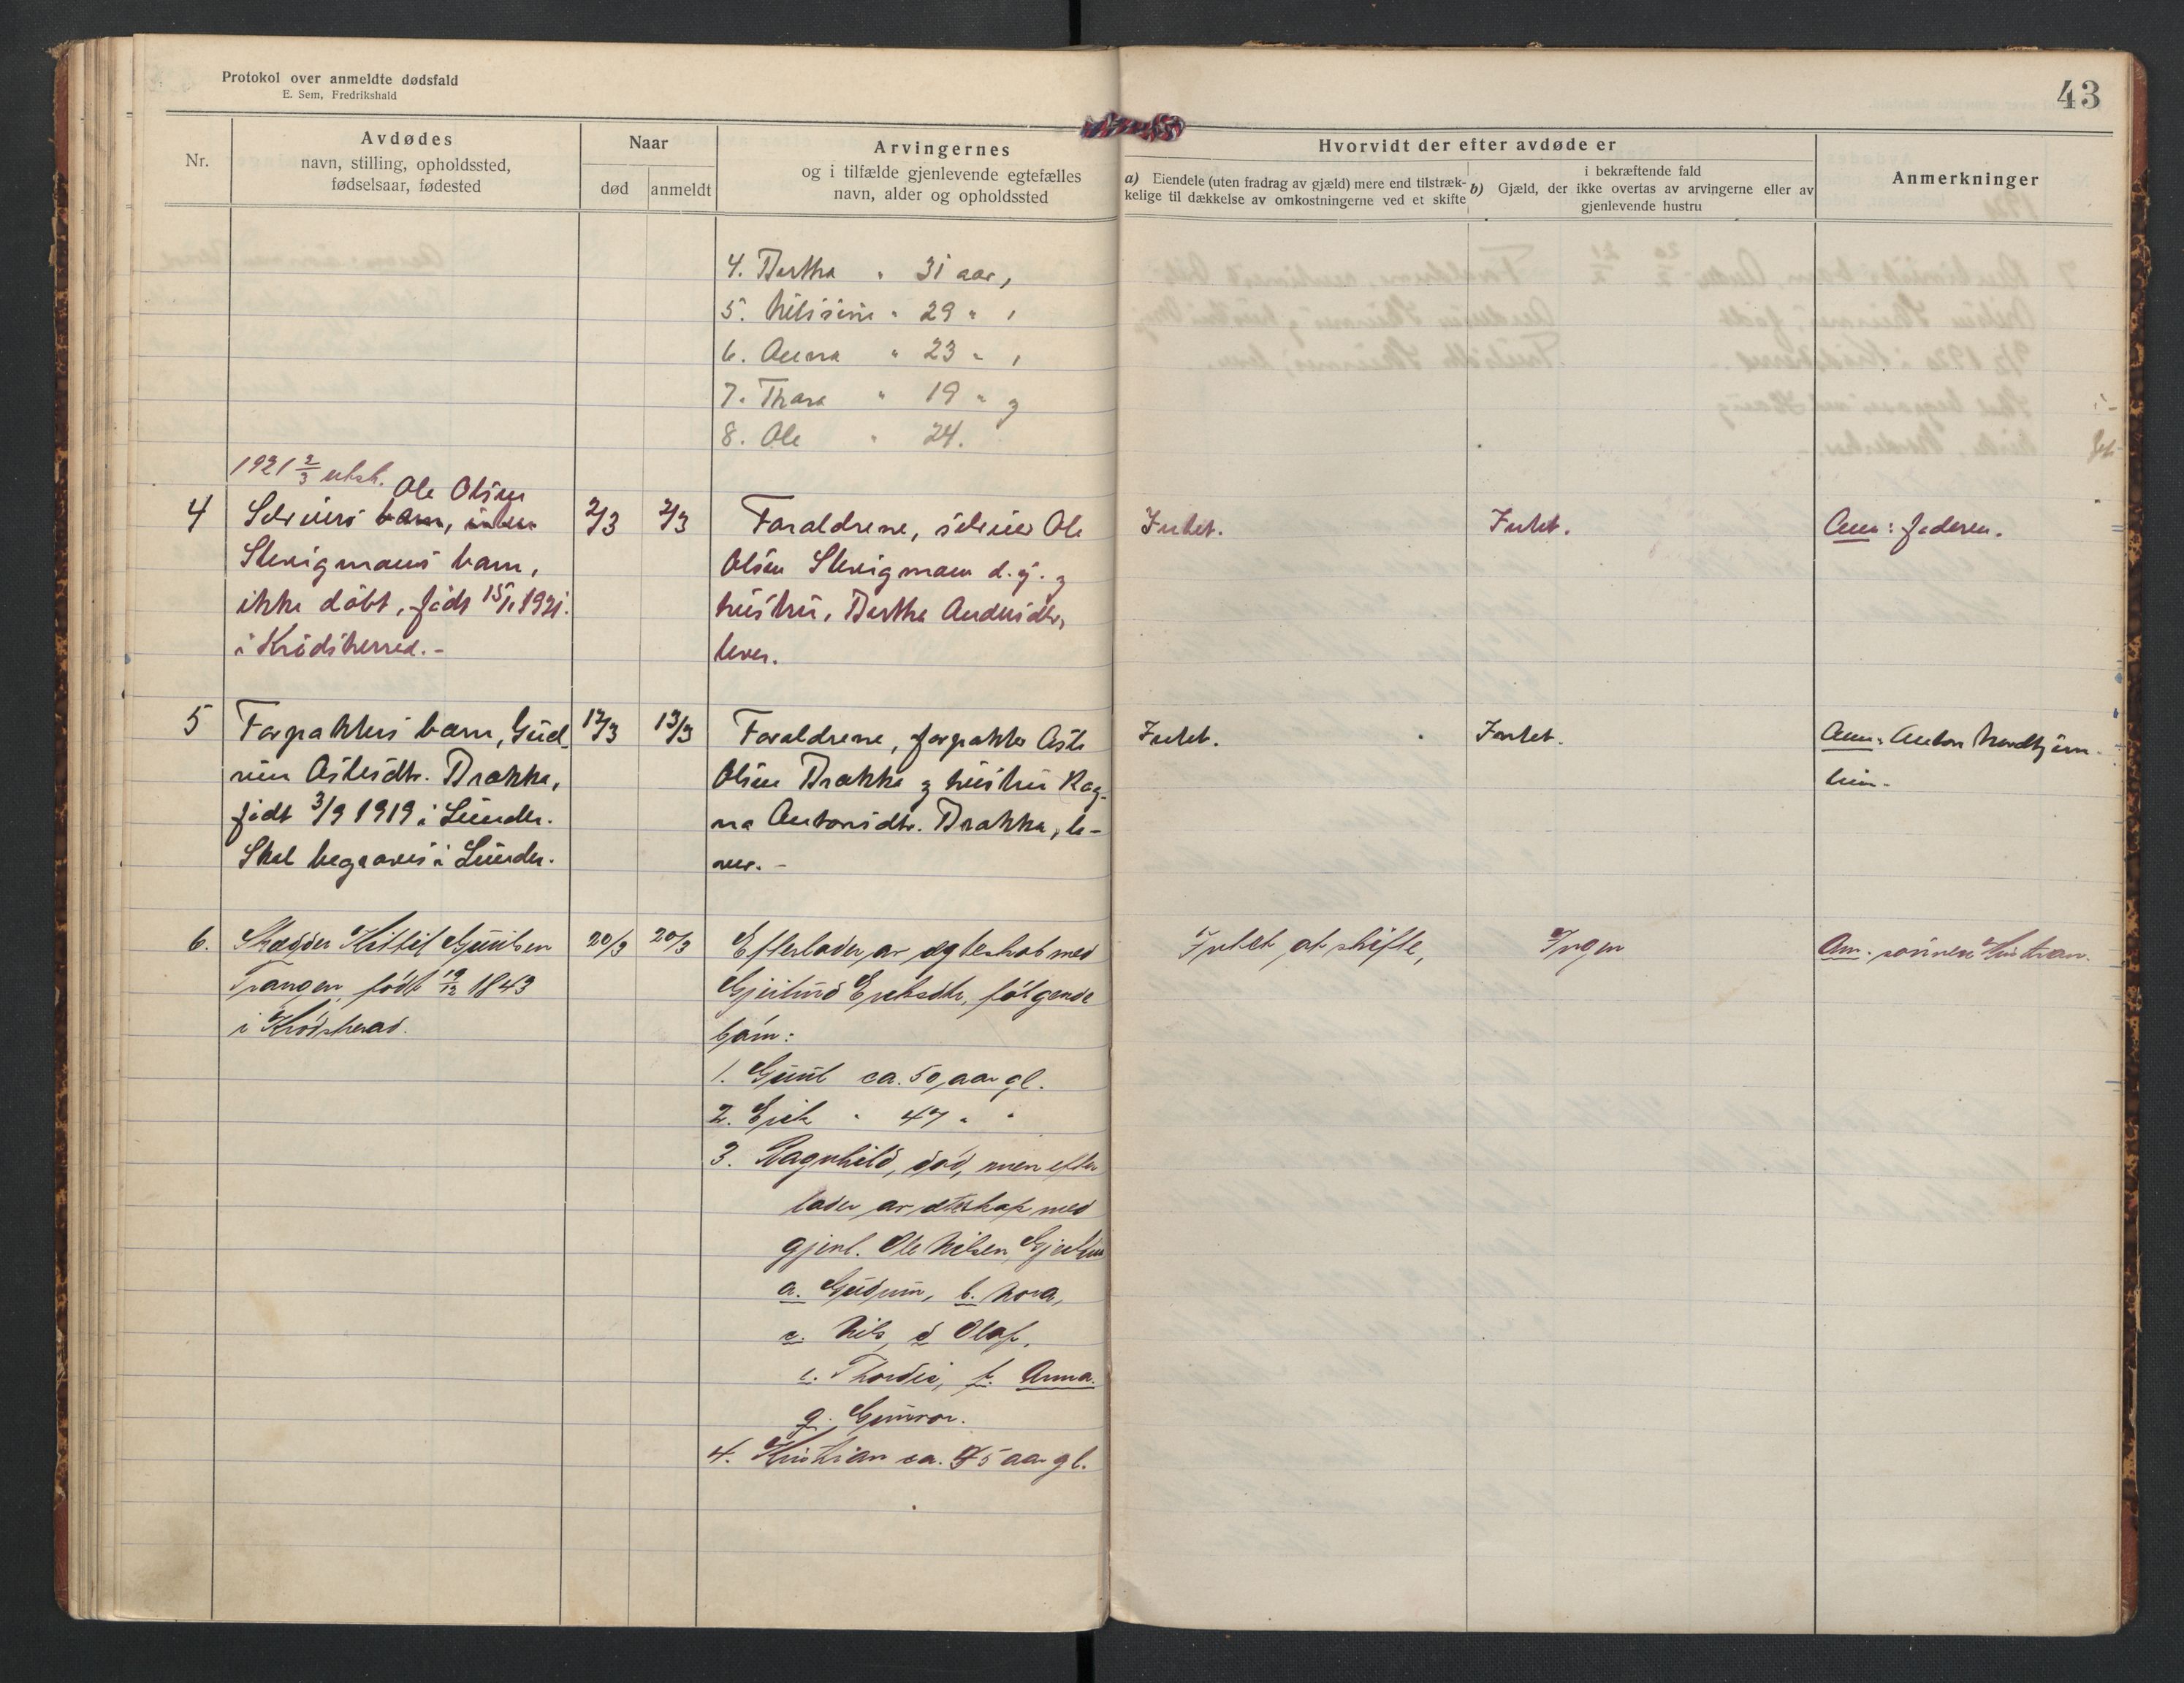 Protokol over anmeldte dødsfald
E. Sem, Fredrikshald
43
Nr.
Avdødes
navn, stilling, opholdssted,
fødselsaar, fødested
Naar
død anmeldt
Arvingernes
og i tilfælde gjenlevende egtefælles
navn, alder og opholdssted
Hvorvidt der efter avdøde er
a) Eiendele (uten fradrag av gjæld) mere end tilstræk-
kelige til dækkelse av omkostningerne ved et skifte
i bekræftende fald
b) Gjæld, der ikke overtas av arvingerne eller av
gjenlevende hustru
Anmerkninger
4. Bertha " 31 aar,
5. Nilsine " 29 " ,
6. Anna " 23 " ,
7. Thora " 19 " og
8. Ole " 24.
1921 2/3 utst.
Ole Olsen
4 Selveiers barn,
Skrigmoens barn,
ikke døbt, født 15/1 1921
i Krødsherred. -
2/3 2/3
Foraldrene, selveier Ole
Olsen Skrigmoen d. y. og
hustru, Bertha Andrisdtr,
lever.
Intet.
Intet.
Anm: faderen.
5 Forpakters barn, Gud-
run Astesdtr. Brakka,
født 3/9 1919 i Lunder.
Skal begraves i Lunder.
12/3 13/3
Foraldrene, forpakter Aste
Olsen Brakka og hustru Rag-
na Antonsdtr. Brakka, le-
ver. -
Intet.
Intet.
Anm: Anton
6. Skrædder Kittil Gulbsen
Trangen, født 19/12 1843
i Krødsherad.
20/3 20/3
Efterlader av egteskab med
Gjertrud Eriksdtr, følgende
børn:
1. Guul ca. 50 aar gl.
2. Erik " 47 " "
3. Ragnhild, død, men efter
lader av ekteskap med
gjenl. Ole Nilsen,
a. Gudrun, b. Nora,
c. Nils, d Olaf,
e. Thordis, f. Anna.
g. Gunvor.
4. Kristian ca. 45 aar gl.
Intet at skifte,
Ingen
Anm. sønnen Kristian.